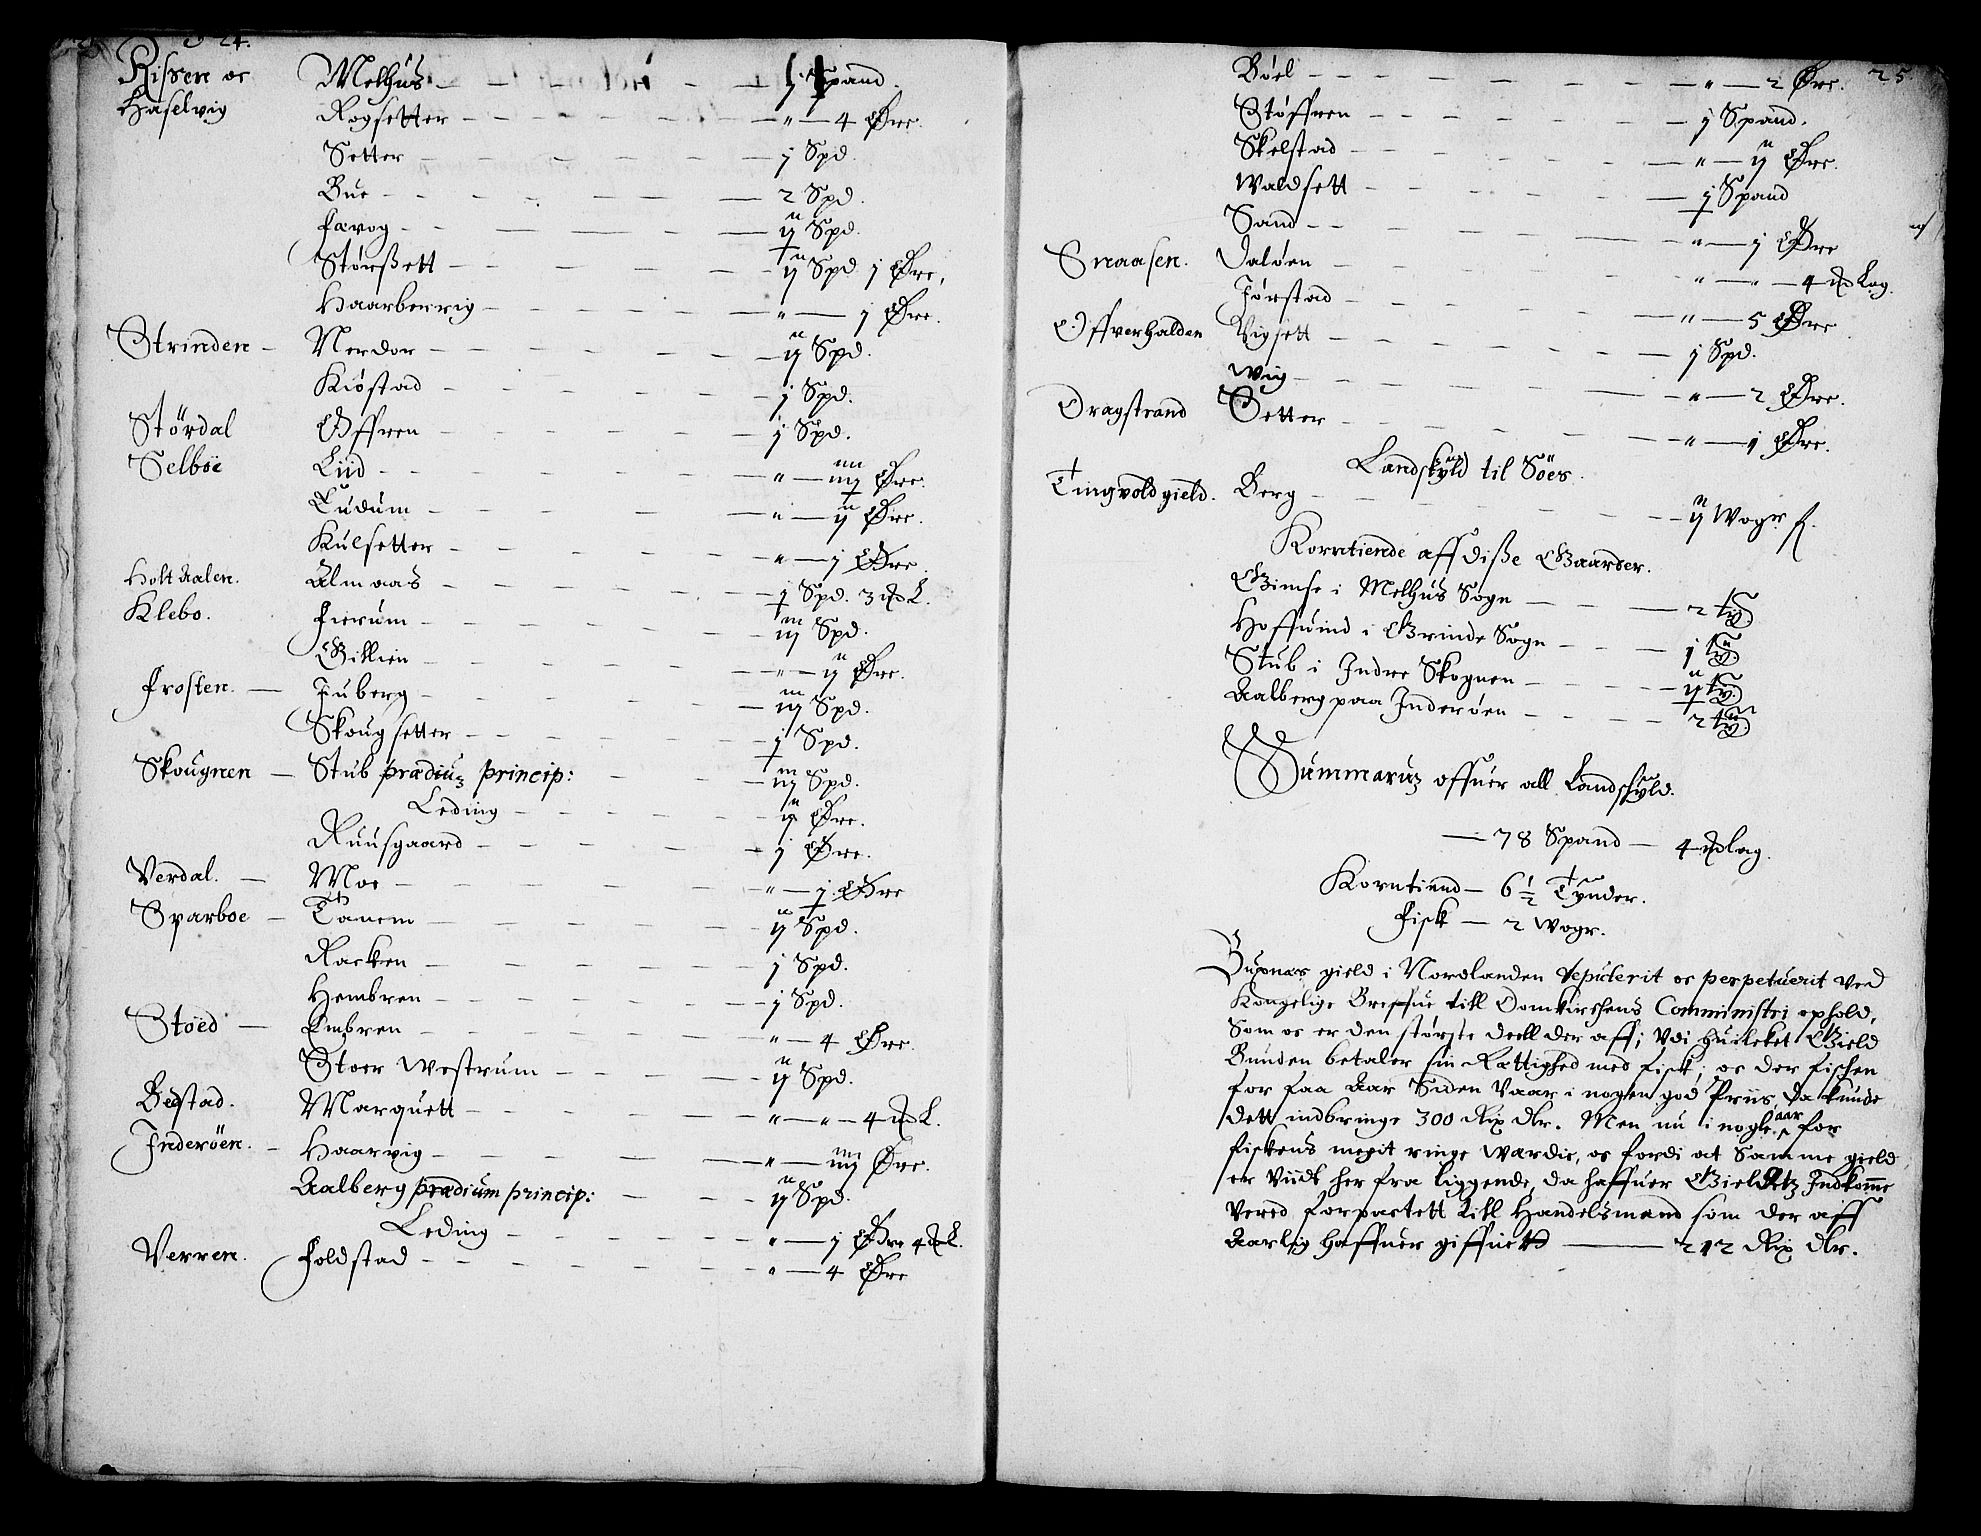 24.
Rissen oc Melhus - - - j Spand.
Haselvig Rogsetter - - - " — 4 Øre.
Setter - - - j Spd.
Bue - - - 2 Spd.
Færog - - - ij Spd.
Størßett - - - ij Spd j Øre.
Haarberrig - - - " — j Øre.
Strinden - Nerdor - - - ij Spd.
Kiöstad - - - j Spd.
Stördal Øffren - - - j Spd.
Selboe Liid - - - " — iiij Øre.
Eudum - - - " — ij Øre.
Kulsetter - - - " — j Øre.
Holtaalen. Almaas - - - j Spd. 3 L.
Klebo. Fierum - - - iij Spd.
Gillien - - - " — ij Øre.
Frosten. — Fuberg - - - iij Spd.
Skougsetter - - - j Spd.
Skougnen — Stub prædium princip: - - - iij Spd.
Leding - - - ij Øre.
Ruusgaard - - - j Øre.
Verdal. — Moe - - - " — j Øre
Sparboe - Tanem - - - ij Spd.
Racken - - - j Spd.
Hembren - - - j Spd.
Stöed — Embren - - - " — 4 Øre.
Stoer Westrum - - - ij Spd.
Bestad. Marquett - - - " — " — 4 L.
Inderöen. - Haarvig - - - " — iiij Øre.
Aalberg prædium princip: - - - ij Spd.
Leding - - - " — j Øre 4 L.
Verren. Foldstad - - - " — 4 Øre
25
Böel - - - " — 2 Øre.
Støffren - - - j Spand.
Skelstad - - - " — ij Øre.
Waldsett - - - j Spand
Sand - - - " — j Øre
Snaasen. Daløen - - - " — " — 4 Lag.
Jørstad - - - " — 5 Øre
Offverhalden Vigsett - - - j Spd.
Wiig - - - " — 2 Øre.
Oragstrand Setter - - - " — j Øre.
Landskyld til Söes.
Tingvoldgield. Berg - - - ij Wogr f.
Korntiende aff diße Gaarder.
Gimse i Melhus Sogn - - - 2 ty
Hoffuind i Grinde Sogn - - - j ty
Stub i Indre Skognen - - - ij ty
Aalberg paa Inderöen - - - 2 ty
Summarum offuer all Landskyld.
— 78 Spand — 4 lag.
Korntiend — 6 1/2 Tynder.
Fisk — 2 Wogr.
Buxnæs gield i Nordlanden deputerit oc perpetuerit ved
Kongelige Breffue till Domkirckens Comministri ophold,
Som oc er den störste deell der aff; Vdi huilcket Gield
Bunden betaler sin Rættighed med fisk; oc der fischen
for faa Aar Siden Vaar i nogen god Priis, da kunde
dett indbringe 300 Rix dlr. Men nu i nogle aar for
fiskens megit ringe Wærdie, oc fordi at Samme gield
er Viidt her fra liggende, da haffuer Gieldetz Indkomme
Vered forpactett till Handelsmænd som der aff
Aarlig haffuer giffuett — 212 Rix dlr.